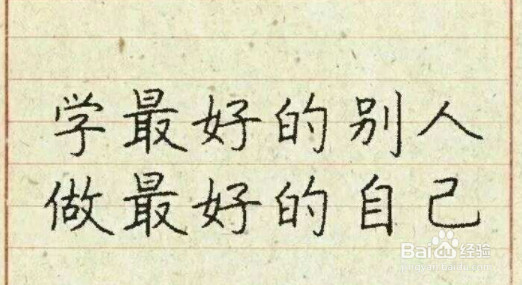 学最好的别人
做最好的自己
Baidu经验